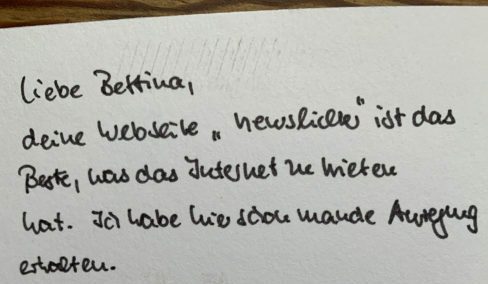 Liebe Bettina,
deine Webseite „newslichter" ist das
Beste, was das Internet zu bieten
hat. Ich habe hier schon manche Anregung
erhalten.